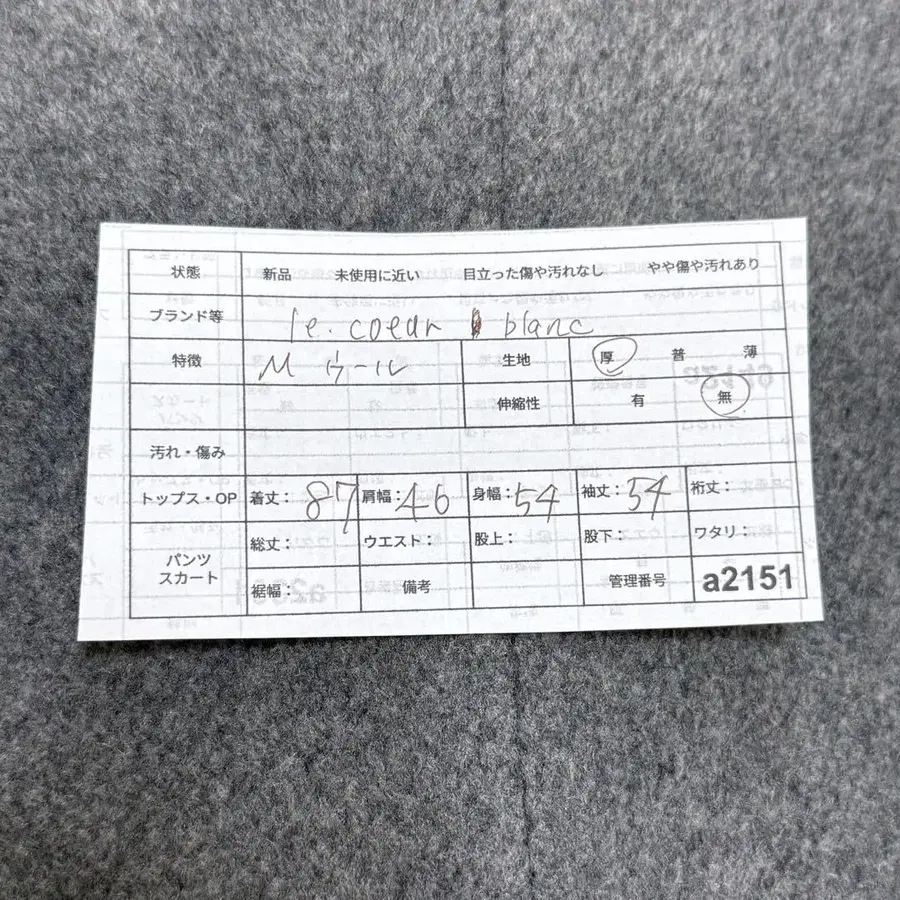 状態 新品 未使用に近い 目立った傷や汚れなし やや傷や汚れあり
ブランド等 le. coeur blanc
特徴 M ウール 生地 厚 普 薄
伸縮性 有 無
汚れ・傷み
トップス・OP 着丈: 87 肩幅: 46 身幅: 54 袖丈: 54 裄丈:
パンツ スカート 総丈: ウエスト: 股上: 股下: ワタリ:
裾幅: 備考 管理番号 a2151